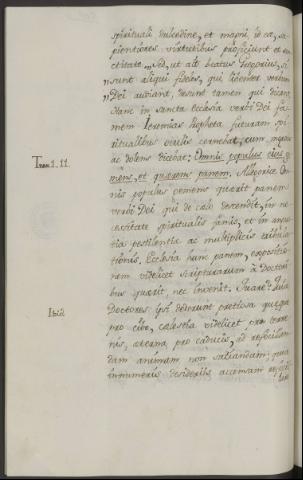 spirituali dulcedine, et magni, id ea, sa-
pientiores virtutibus proficiunt et san-
ctitate. „Sed, ut ait beatus Gregorius, si
„sunt aliqui fideles, qui libenter verbum
„Dei audiant, desunt tamen qui dicant.
Hanc in sancta ecclesia verbi Dei fa-
mem Ieremias Propheta futuram spi-
ritualibus oculis cernebat, cum, magno
ac dolens dicebat: Omnis populus eius ge-
Tren. 1. 11.
mens, et quaerens panem. Allegorice Om-
nis populus gemens quaerit panem
verbi Dei, qui de caelo descendit, in ne-
cessitate spiritualis famis, et in angus-
tia pestilentiae ac multiplicis tribula-
tionis. Ecclesia hunc panem, expositio-
nem videlicet scripturarum a Doctori-
bus quaerit, nec invenit. Quare? Quia
Doctores ipsi dederunt pretiosa quaeque
Ibid.
pro cibo, caelestia videlicet pro terre-
nis, aeterna pro caducis, ad refocillan-
dam animam non satiandam; quia
innumeris desideriis accensam